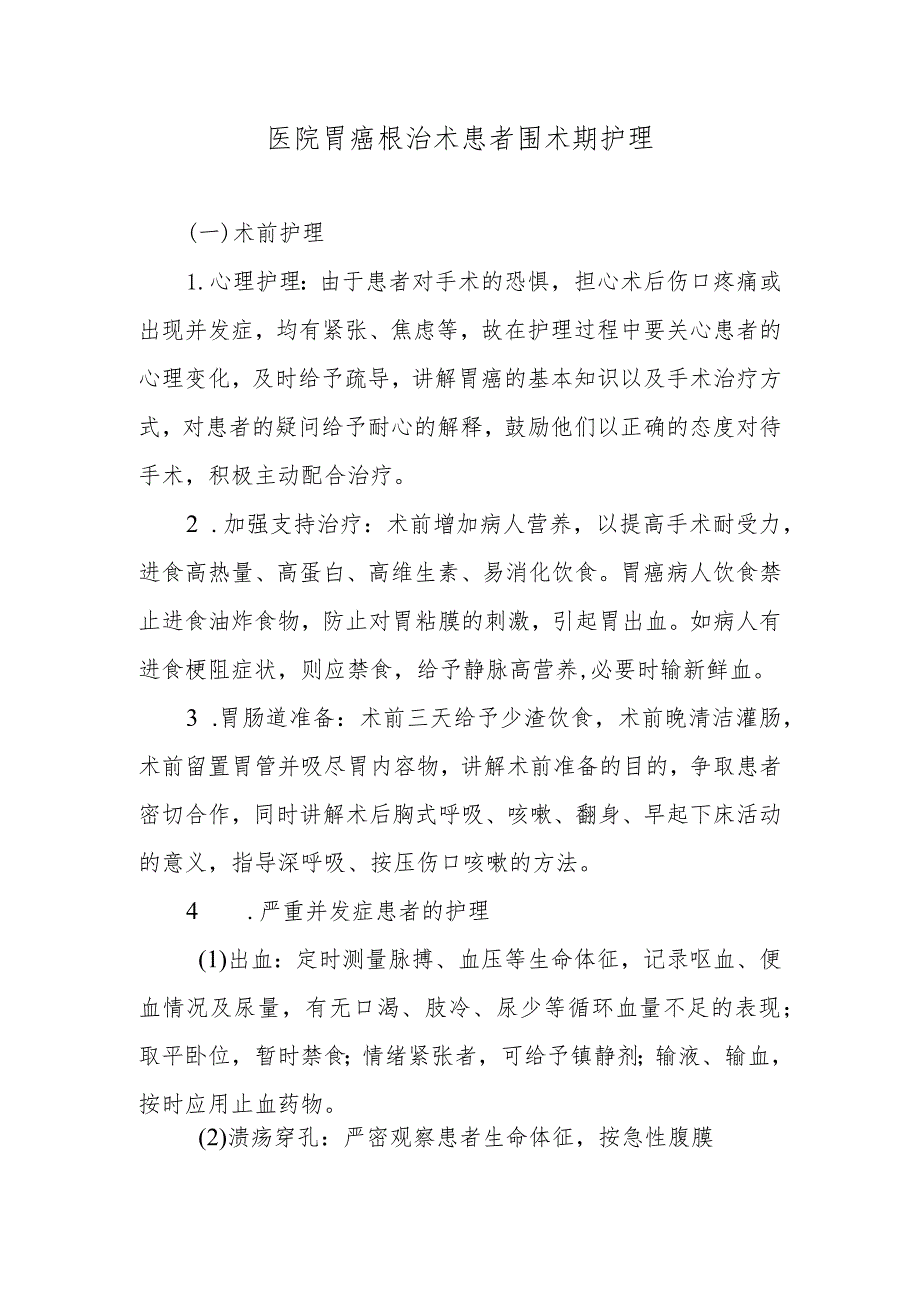 医院胃癌根治术患者围术期护理
(一)术前护理
1.心理护理：由于患者对手术的恐惧，担心术后伤口疼痛或
出现并发症，均有紧张、焦虑等，故在护理过程中要关心患者的
心理变化，及时给予疏导，讲解胃癌的基本知识以及手术治疗方
式，对患者的疑问给予耐心的解释，鼓励他们以正确的态度对待
手术，积极主动配合治疗。
2 .加强支持治疗：术前增加病人营养，以提高手术耐受力，
进食高热量、高蛋白、高维生素、易消化饮食。胃癌病人饮食禁
止进食油炸食物，防止对胃粘膜的刺激，引起胃出血。如病人有
进食梗阻症状，则应禁食，给予静脉高营养,必要时输新鲜血。
3 .胃肠道准备：术前三天给予少渣饮食，术前晚清洁灌肠，
术前留置胃管并吸尽胃内容物，讲解术前准备的目的，争取患者
密切合作，同时讲解术后胸式呼吸、咳嗽、翻身、早起下床活动
的意义，指导深呼吸、按压伤口咳嗽的方法。
4 .严重并发症患者的护理
(1)出血：定时测量脉搏、血压等生命体征，记录呕血、便
血情况及尿量，有无口渴、肢冷、尿少等循环血量不足的表现；
取平卧位，暂时禁食；情绪紧张者，可给予镇静剂；输液、输血，
按时应用止血药物。
(2)溃疡穿孔：严密观察患者生命体征，按急性腹膜